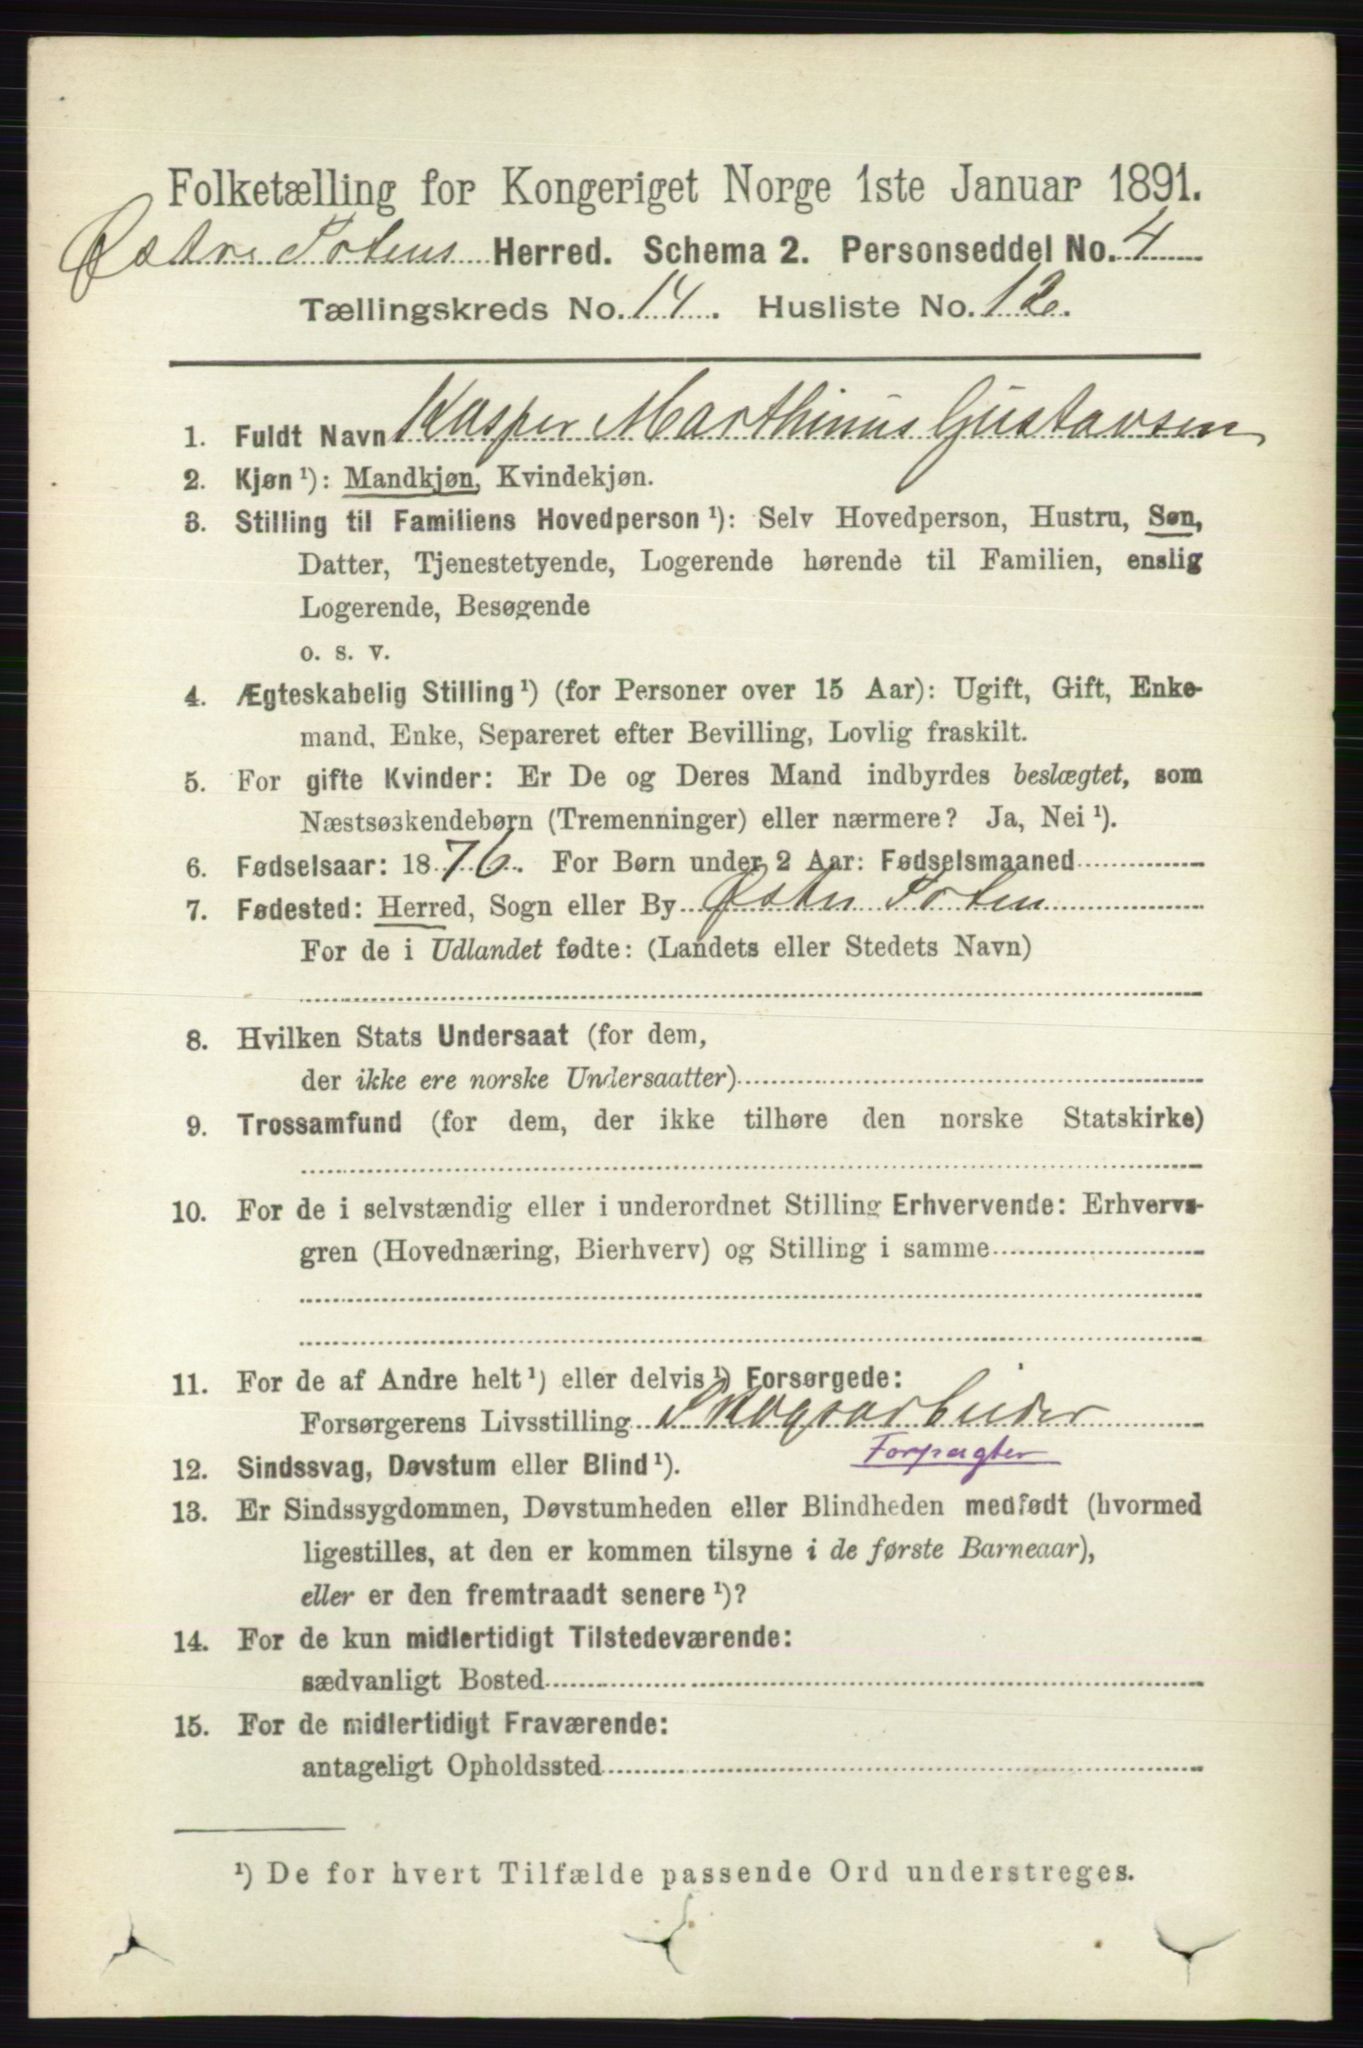 Folketælling for Kongeriget Norge 1ste Januar 1891.
Østre Totens Herred. Schema 2. Personseddel No. 4
Tællingskreds No. 14. Husliste No. 12.
1. Fuldt Navn Kasper Marthinus Gustavsen
2. Kjøn ¹): Mandkjøn, Kvindekjøn.
3. Stilling til Familiens Hovedperson ¹): Selv Hovedperson, Hustru, Søn,
Datter, Tjenestetyende, Logerende hørende til Familien, enslig
Logerende, Besøgende
o. s. v.
4. Ægteskabelig Stilling ¹) (for Personer over 15 Aar): Ugift, Gift, Enke-
mand, Enke, Separeret efter Bevilling, Lovlig fraskilt.
5. For gifte Kvinder: Er De og Deres Mand indbyrdes beslægtet, som
Næstsøskendebørn (Tremenninger) eller nærmere? Ja, Nei ¹).
6. Fødselsaar: 1876. For Børn under 2 Aar: Fødselsmaaned
7. Fødested: Herred, Sogn eller By Østre Toten
For de i Udlandet fødte: (Landets eller Stedets Navn)
8. Hvilken Stats Undersaat (for dem,
der ikke ere norske Undersaatter)
9. Trossamfund (for dem, der ikke tilhøre den norske Statskirke)
10. For de i selvstændig eller i underordnet Stilling Erhvervende: Erhvervs-
gren (Hovednæring, Bierhverv) og Stilling i samme
11. For de af Andre helt ¹) eller delvis ¹) Forsørgede:
Forsørgerens Livsstilling Skogsarbeider
Forpagter
12. Sindssvag, Døvstum eller Blind ¹).
13. Er Sindssygdommen, Døvstumheden eller Blindheden medfødt (hvormed
ligestilles, at den er kommen tilsyne i de første Barneaar),
eller er den fremtraadt senere ¹)?
14. For de kun midlertidigt Tilstedeværende:
sædvanligt Bosted
15. For de midlertidigt Fraværende:
antageligt Opholdssted
¹) De for hvert Tilfælde passende Ord understreges.